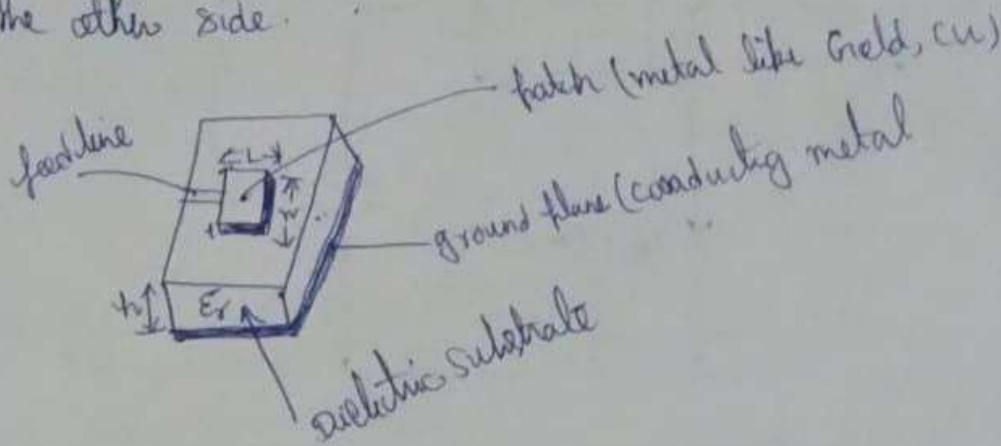 the other side.
patch (metal like Gold, Cu)
feed line
L
W
t
ground plane (conducting metal
h
εr
Dielectric substrate